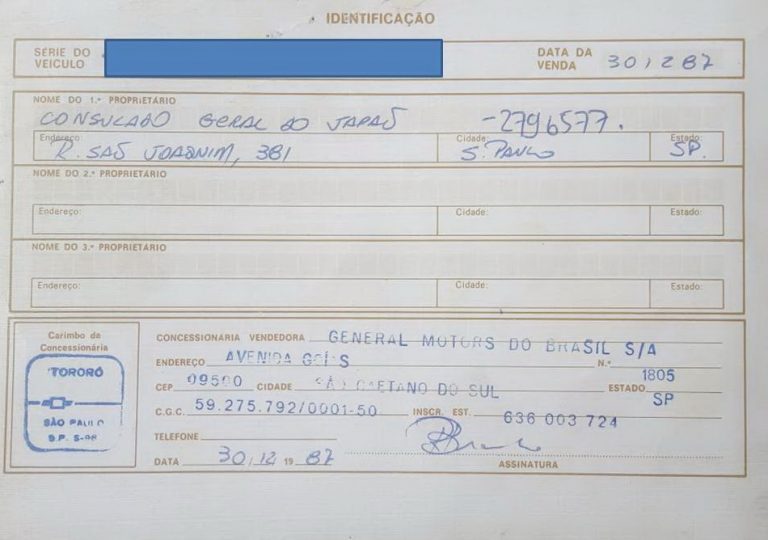 IDENTIFICAÇÃO
SÉRIE DO VEICULO
DATA DA VENDA 30,12 87
NOME DO 1.º PROPRIETÁRIO
CONSULADO GERAL DO JAPAÕ -2796577.
Endereço: R. SAÕ JOAQUIM, 381 Cidade: S. PAULO Estado: SP.
NOME DO 2.º PROPRIETÁRIO
Endereço: Cidade: Estado:
NOME DO 3.º PROPRIETÁRIO
Endereço: Cidade: Estado:
Carimbo da Concessionária
TORORÓ
SÃO PAULO
CONCESSIONÁRIA VENDEDORA GENERAL MOTORS DO BRASIL S/A
ENDEREÇO AVENIDA GOIÁS N.º 1805
CEP 09500 CIDADE SÃO CAETANO DO SUL ESTADO SP
C.G.C. 59.275.792/0001-50 INSCR. EST. 636 003 724
TELEFONE
DATA 30,12 19 87 ASSINATURA